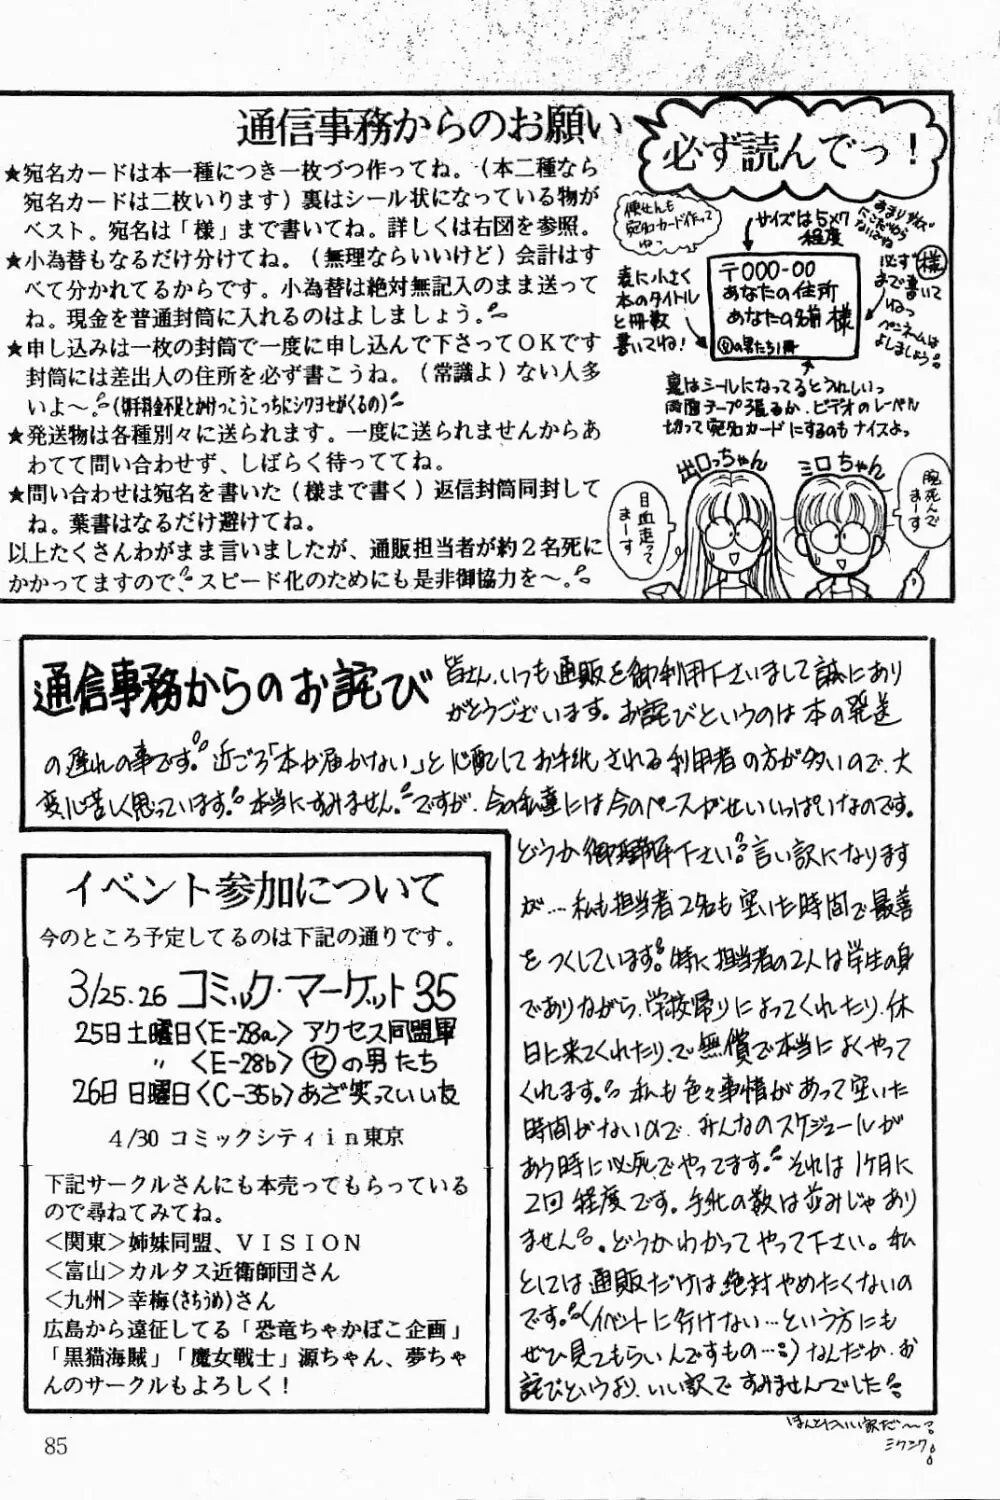 通信事務からのお願い
必ず読んでっ！
★宛名カードは本一種につき一枚づつ作ってね。(本二種なら
宛名カードは二枚いります) 裏はシール状になっている物が
ベスト。宛名は「様」まで書いてね。詳しくは右図を参照。
★小為替もなるだけ分けてね。(無理ならいいけど) 会計はす
べて分かれてるからです。小為替は絶対無記入のまま送って
ね。現金を普通封筒に入れるのはよしましょう。
★申し込みは一枚の封筒で一度に申し込んで下さってＯＫです
封筒には差出人の住所を必ず書こうね。(常識よ) ない人多
いよ～。(切手料金不足とかけっこうこっちにシワヨセがくるの)
★発送物は各種別々に送られます。一度に送られませんからあ
わてて問い合わせず、しばらく待っててね。
★問い合わせは宛名を書いた (様まで書く) 返信封筒同封して
ね。葉書はなるだけ避けてね。
以上たくさんわがまま言いましたが、通販担当者が約２名死に
かかってますので、スピード化のためにも是非御協力を～。
便せんも
宛名カード作って
ねっ
サイズは5×7
程度
必ず様
まで書いて
ねっ
ペンネームは
よしましょう
表に小さく
本のタイトル
と冊数
書いてね！
〒000-00
あなたの住所
あなたの名前 様
㋝の男たち1冊
裏はシールになってるとうれしいっ
両面テープ張るか、ビデオのレーベル
切って宛名カードにするのもナイスよっ
出口っちゃん
ミロちゃん
目血走って
まーす
腕死んで
まーす
通信事務からのお詫び
皆さん、いつも通販を御利用下さいまして誠にあり
がとうございます。お詫びというのは本の発送
の遅れの事です。近ごろ「本が届かない」と心配してお手紙される利用者の方が多いので、大
変心苦しく思っています。本当にすみません。ですが、今の私達には今のペースがせいいっぱいなのです。
どうか御理解下さい。言い訳になります
が…私も担当者2名も空いた時間で最善
をつくしています。特に担当者の2人は学生の身
でありながら、学校帰りによってくれたり、休
日に来てくれたり、で無償で本当によくやって
くれます。私も色々事情があって空いた
時間がないので、みんなのスケジュールが
あう時に必死でやってます。それは1ヶ月に
2回程度です。手紙の数は並みじゃあり
ません。どうかわかってやって下さい。私
としては通販だけは絶対やめたくないの
です。(イベントに行けない…という方にも
ぜひ見てもらいんですもの…) なんだか、お
詫びというより、いい訳ですみませんでした
ほんとにいい訳だ～
ミケンワ
イベント参加について
今のところ予定してるのは下記の通りです。
3/25.26 コミック・マーケット35
25日土曜日〈E-28a〉アクセス同盟軍
〃 〈E-28b〉㋝の男たち
26日 日曜日〈C-35b〉あざ笑っていい友
4/30 コミックシティｉｎ東京
下記サークルさんにも本売ってもらっている
ので尋ねてみてね。
＜関東＞姉妹同盟、ＶＩＳＩＯＮ
＜富山＞カルタス近衛師団さん
＜九州＞幸梅(さちうめ)さん
広島から遠征してる「恐竜ちゃかぽこ企画」
「黒猫海賊」「魔女戦士」源ちゃん、夢ちゃ
んのサークルもよろしく！
85